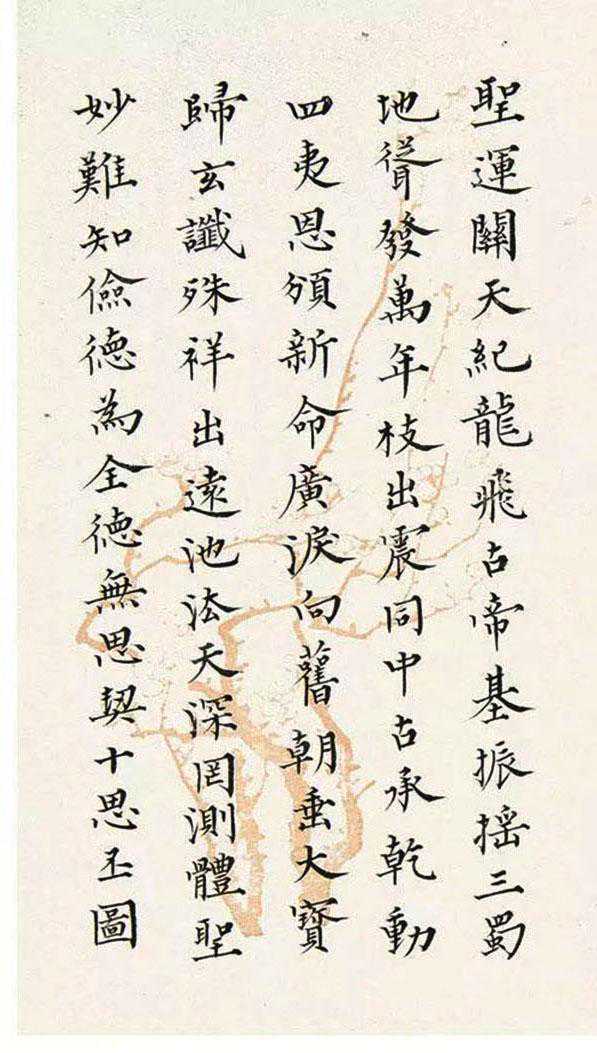 聖運關天紀龍飛古帝基振搖三蜀
地聳發萬年枝出震同中古承乾動
四夷恩頒新命廣淚向舊朝垂大寳
歸玄讖殊祥出遠池法天深罔測體聖
妙難知儉德為全德無思契十思丕圖